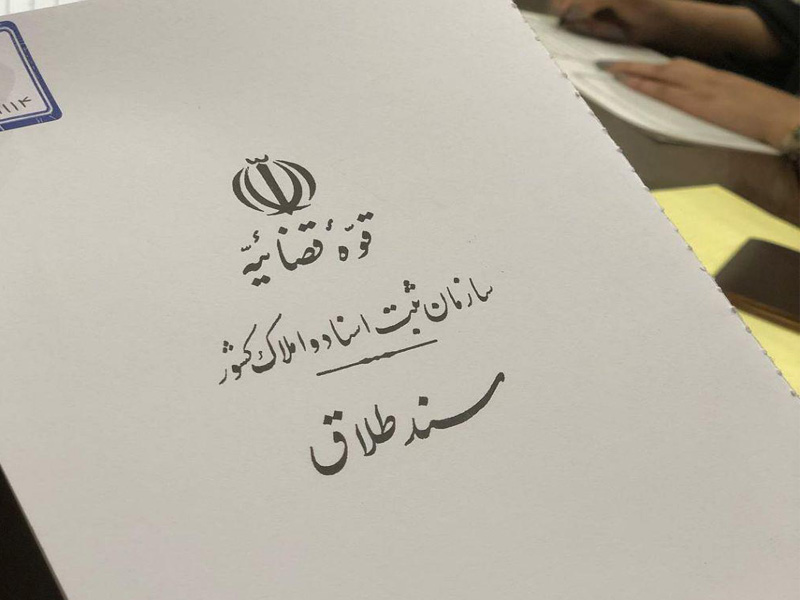 ۱۱۴
قوّهٔ قضائیّه
سازمان ثبت اسناد و املاک کشور
سند طلاق